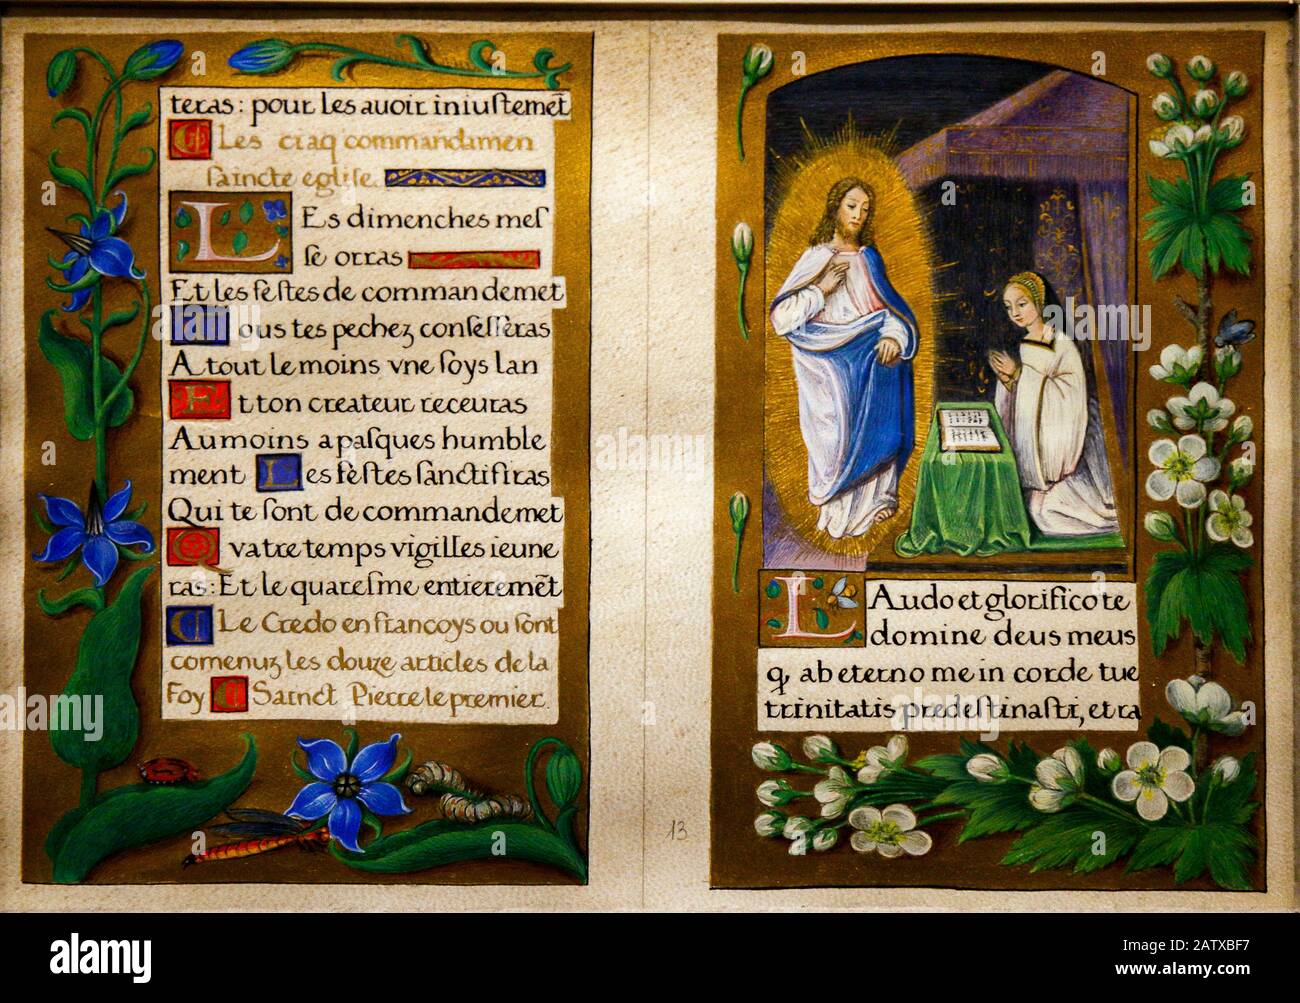 teras: pour les avoir iniustemēt
Les cinq commandemen
saincte eglise.
LEs dimenches mes
se orras
Et les festes de commandemēt
Tous tes pechez confesseras
A tout le moins vne foys lan
Et ton createur receuras
Au moins a pasques humble
ment Les festes sanctifiras
Qui te sont de commandemēt
Quatre temps vigilles ieune
ras: Et le quaresme entieremēt
Le Credo en francoys ou sont
comenuz les douze articles de la
Foy Sainct Pierre le premier.
LAudo et glorifico te
domine deus meus
q, ab eterno me in corde tue
trinitatis predestinasti, et ra
13
alamy
Image ID: 2ATXBF7
www.alamy.com